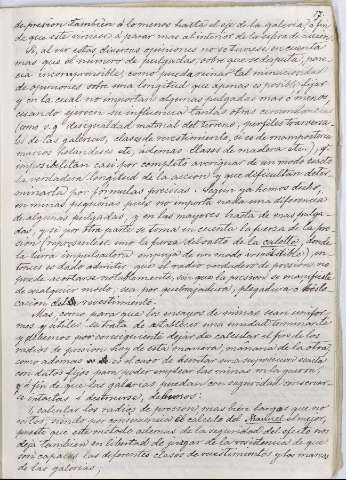 17.
depresion tambien á lo menos hasta el eje de la galeria, á fin
de que este viniese á parar mas al interior de la esfera de accion.
Si, al ver estas diversas opiniones no se tuviese en cuenta
mas que el número de pulgadas, sobre que se disputa, pare-
cia incomprensible, como pueda reinar tal minuciosidad
de opiniones sobre una longitud que apenas es posible fijar
y en la cual no importan algunas pulgadas mas ó menos,
cuando ejercen su influencia tantas otras circunstancias
(como v.g. desigualdad material del terreno, perfiles transversa-
les de las galerias, clases de revestimiento, pies de mamposteria
marcos holandeses etc, ademas clases de madera etc.), que
imposibilitan casi por completo averiguar de un modo exacto
la verdadera longitud de la accion y que dificultan deter-
minarla por fórmulas precisas. Segun ya hemos dicho,
en minas pequeñas pues no importa nada una diferencia
de algunas pulgadas, y en las mayores hasta de mas pulga-
das, y si por otra parte se toma en cuenta la fuerza de la pre-
sion (represéntese uno la fuerza del salto de la calotte, donde
la tierra impulsadora empuja de un modo irresistible), en-
tonces es dado admitir que el radio rendidor de presion no
puede acortarse notablemente, sin que la presion se manifieste
de cualquier modo, sea por quebrajadura, plegadura ó dislo-
cacion del revestimiento.
Mas, como para que los ensayos de minas sean unifor-
mes y utiles se trata de establecer una unidad terminante
y debemos por consiguiente dejar de calcular el fin de los
radios de presion hoy de esta manera, mañana de la otra,
como ademas es el caso de desertar una supresion exacta
con datos fijos para poder emplear las minas en la guerra,
y á fin de que las galerias puedan con seguridad conservar-
se intactas ó destruirse, debemos:
1, calcular los radios de presion mas bien largos que no
cortos, siendo por consecuencia el cálculo del Manuel el mejor,
puesto que este método ademas de la seguridad del efecto nos
deja tambien en libertad de juzgar de la resistencia de que
son capaces las diferentes clases de revestimientos y los marcos
de las galerias;